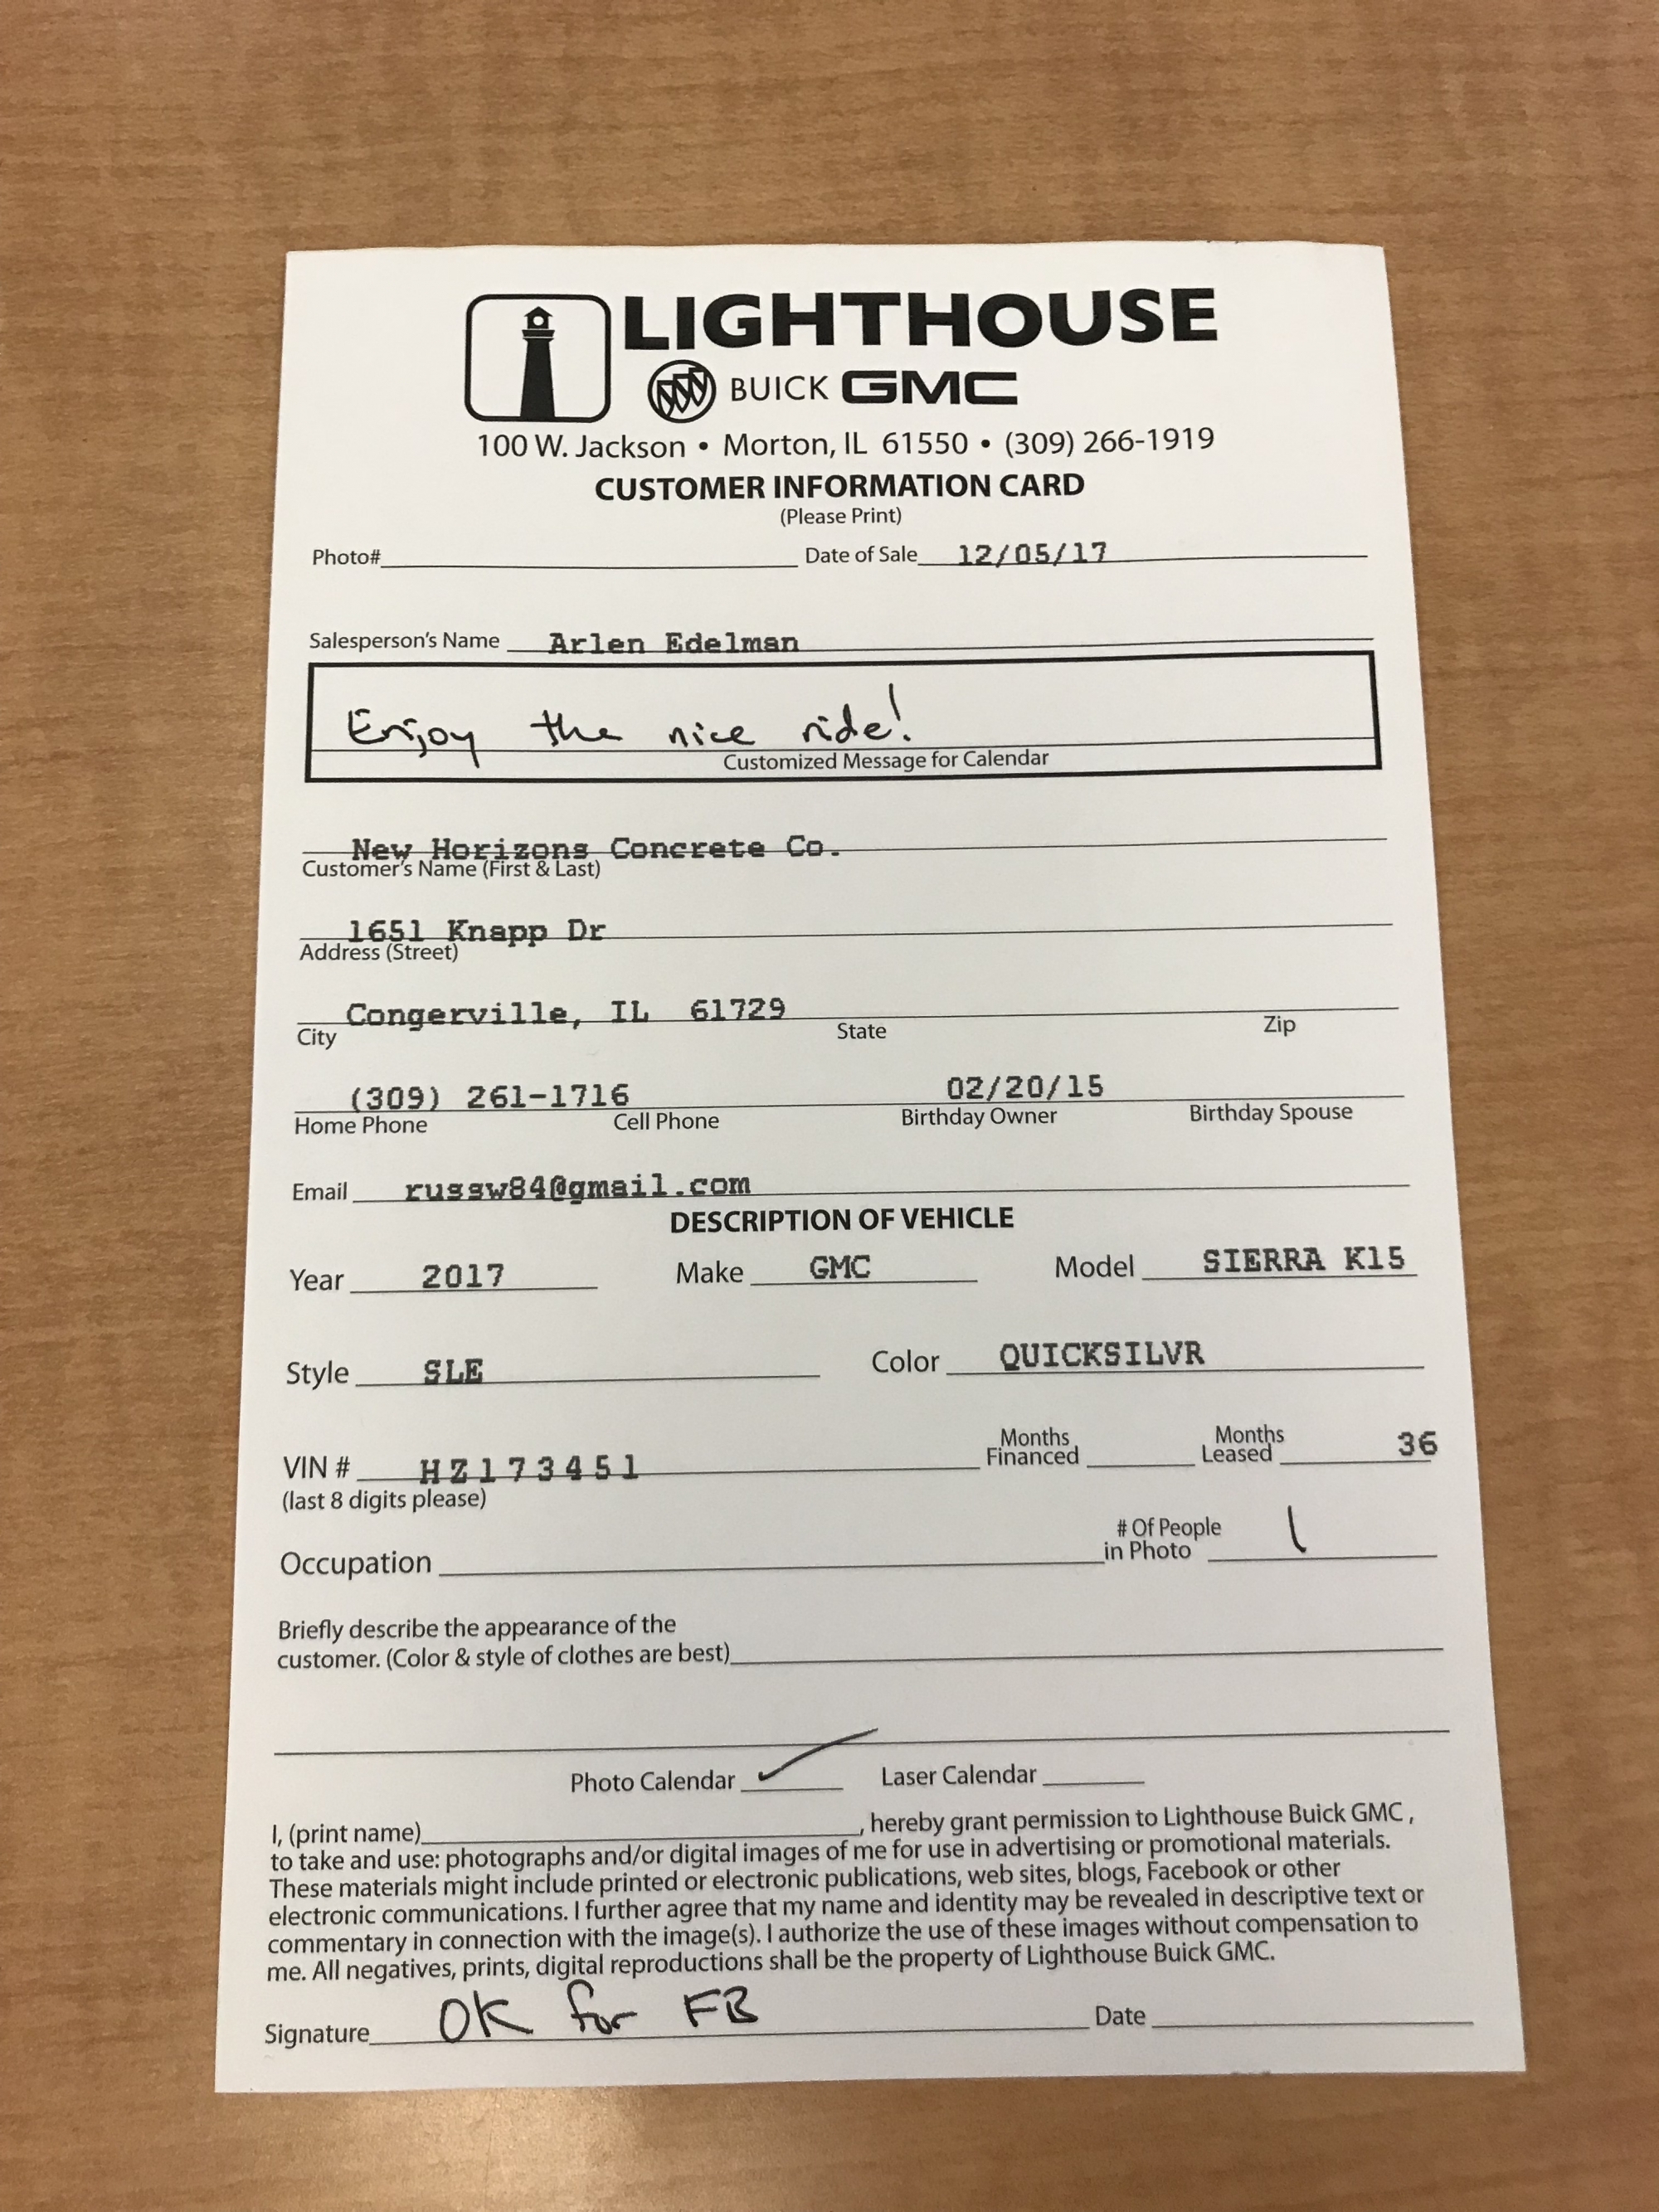 LIGHTHOUSE
BUICK GMC
100 W. Jackson • Morton, IL 61550 • (309) 266-1919
CUSTOMER INFORMATION CARD
(Please Print)
Photo# Date of Sale 12/05/17
Salesperson's Name Arlen Edelman
Enjoy the nice ride!
Customized Message for Calendar
New Horizons Concrete Co.
Customer's Name (First & Last)
1651 Knapp Dr
Address (Street)
Congerville, IL 61729
City State Zip
(309) 261-1716 02/20/15
Home Phone Cell Phone Birthday Owner Birthday Spouse
Email russw84@gmail.com
DESCRIPTION OF VEHICLE
Year 2017 Make GMC Model SIERRA K15
Style SLE Color QUICKSILVR
VIN # HZ173451 Months Financed Months Leased 36
(last 8 digits please)
Occupation # Of People in Photo 1
Briefly describe the appearance of the
customer. (Color & style of clothes are best)
Photo Calendar ✓ Laser Calendar
I, (print name) , hereby grant permission to Lighthouse Buick GMC ,
to take and use: photographs and/or digital images of me for use in advertising or promotional materials.
These materials might include printed or electronic publications, web sites, blogs, Facebook or other
electronic communications. I further agree that my name and identity may be revealed in descriptive text or
commentary in connection with the image(s). I authorize the use of these images without compensation to
me. All negatives, prints, digital reproductions shall be the property of Lighthouse Buick GMC.
Signature OK for FB Date